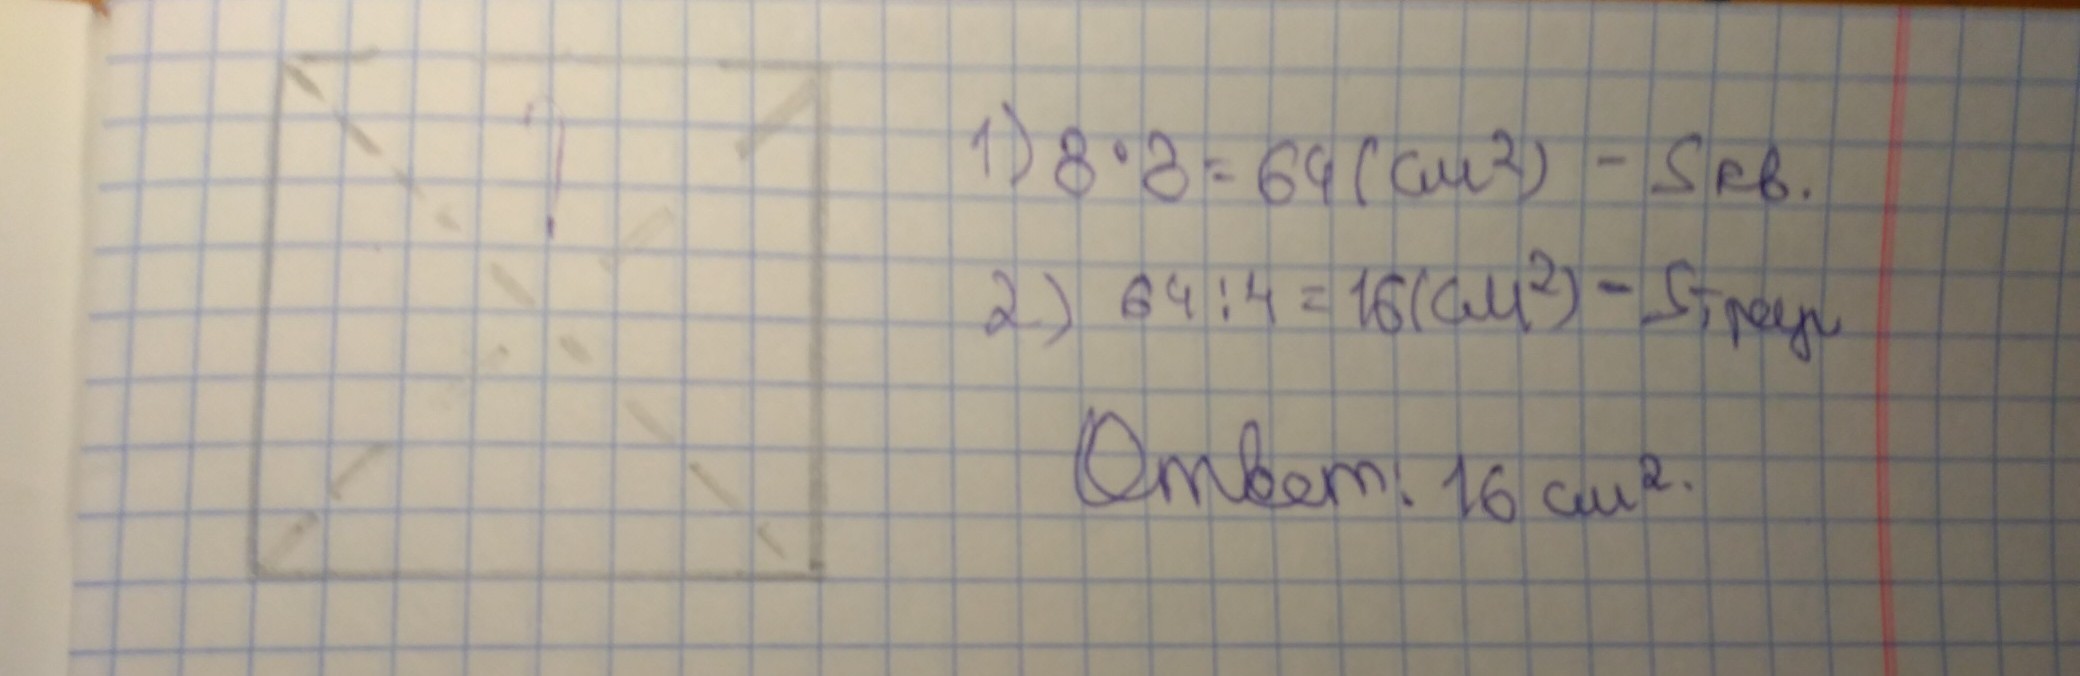 ?
1) 8·8=64(см²) - Sкв.
2) 64:4=16(см²) - Sтреуг
Ответ: 16 см².